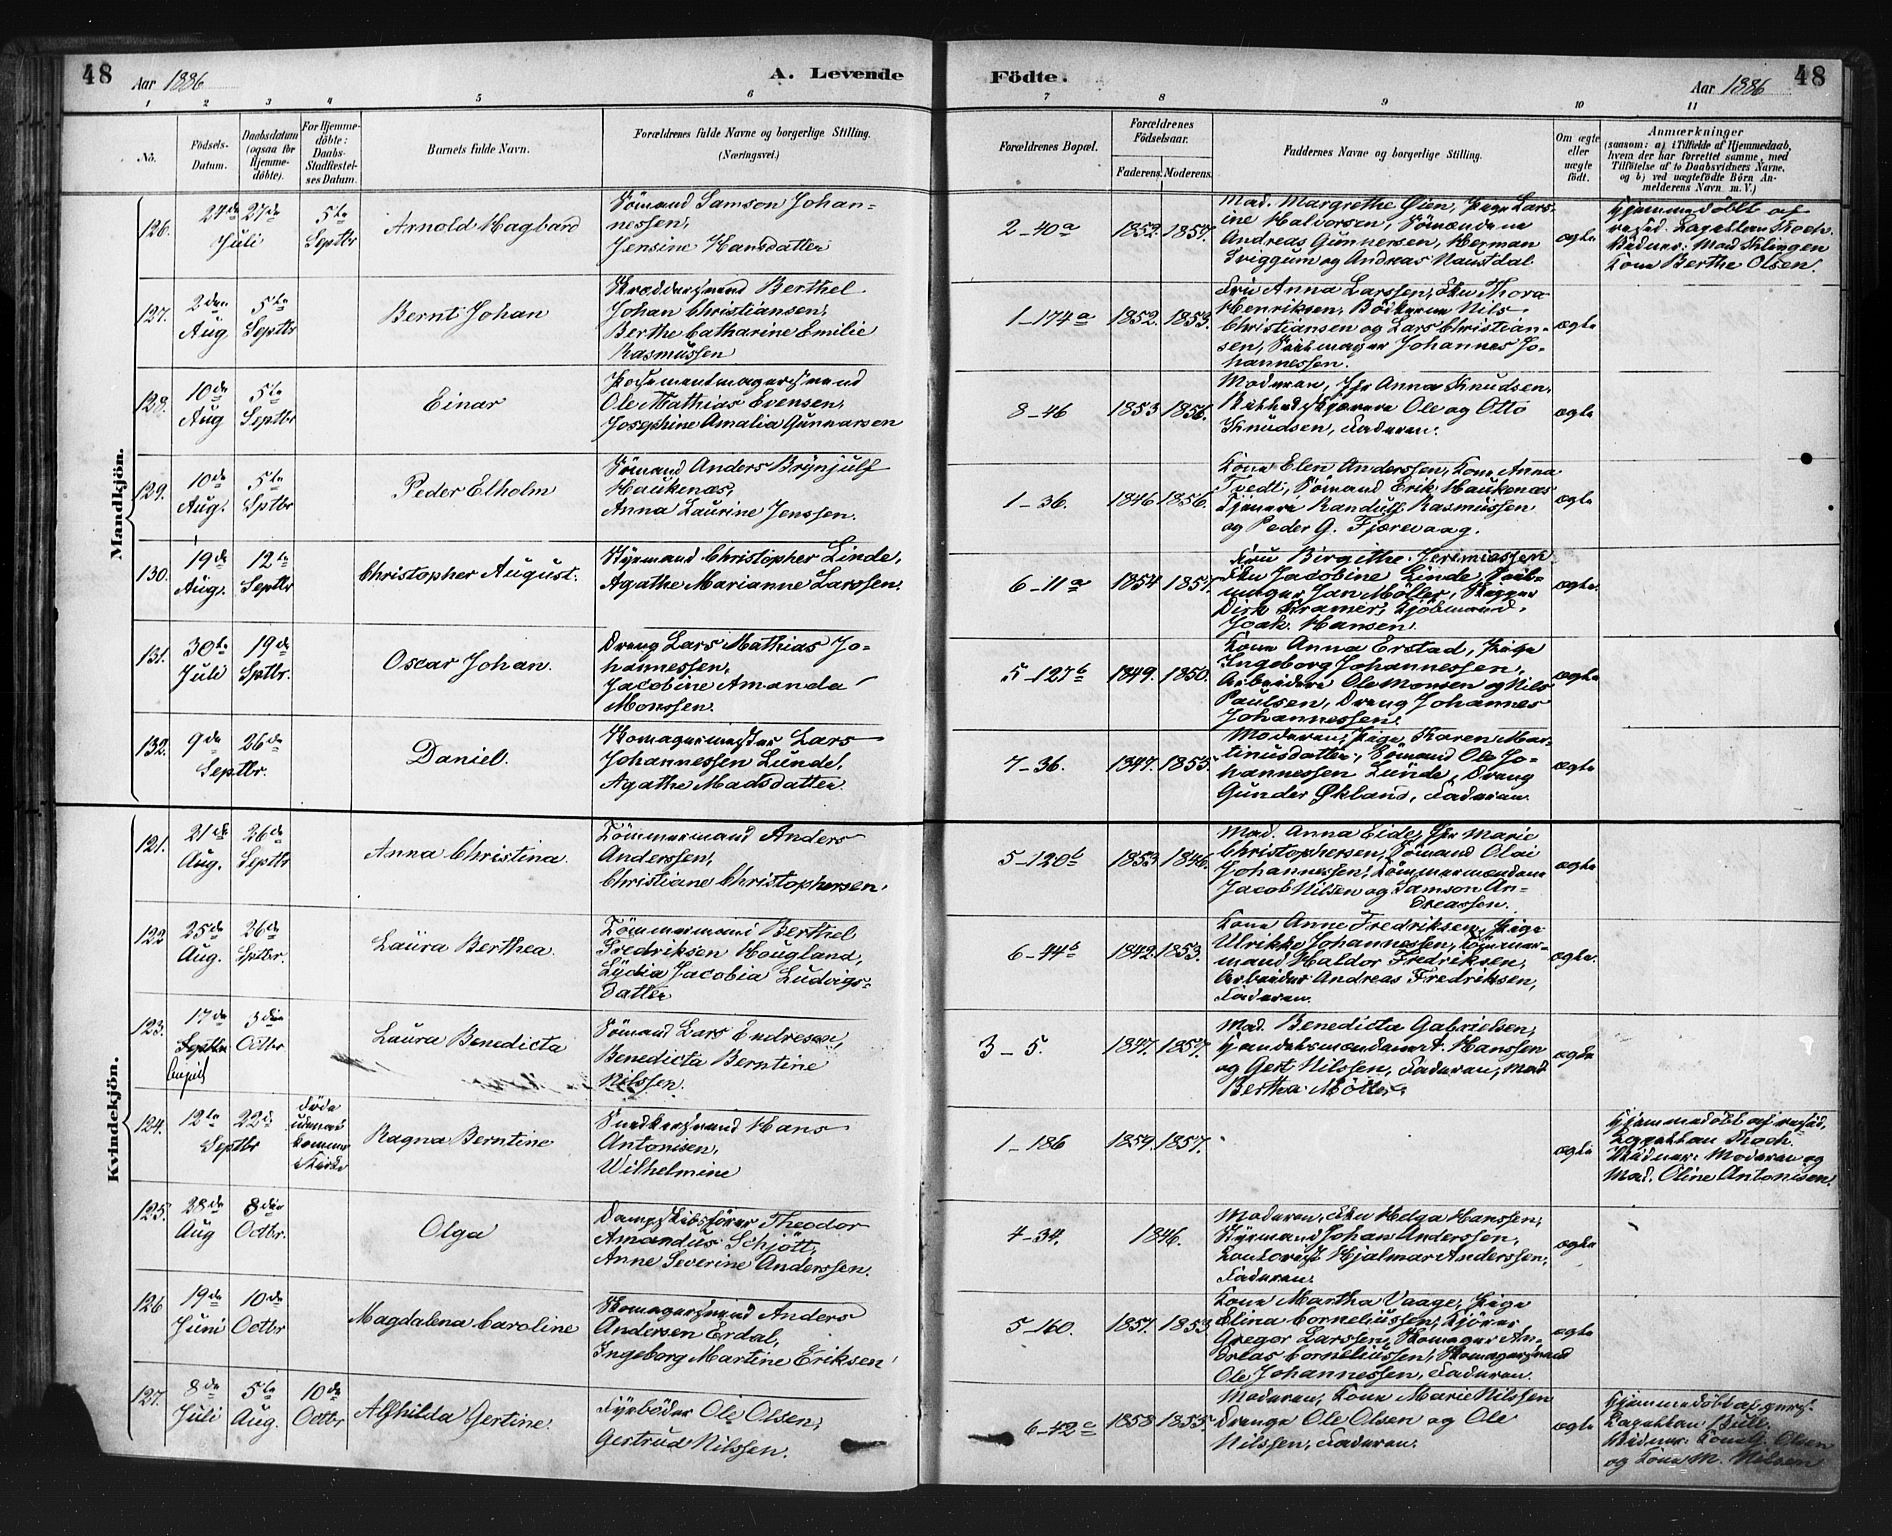 48
Aar 1886
A. Levende
Födte.
Aar 1886
48
1 2 3 4 5 6 7 8 9 10 11
No.
Födsels-
Datum.
Daabsdatum
(ogsaa for
Hjemme-
döbte).
For Hjemme-
döbte:
Daabs-
Stadfæstel-
ses Datum.
Barnets fulde Navn.
Forældrenes fulde Navne og borgerlige Stilling.
(Næringsvei.)
Forældrenes Bopæl.
Forældrenes
Födselsaar.
Faderens. Moderens.
Faddernes Navne og borgerlige Stilling.
Om ægte
eller
uægte
født.
Anmærkninger
(saasom: a) i Tilfælde af Hjemmedaab,
hvem der har forrettet samme, med
Tilføielse af to Daabsvidners Navne,
og b) ved uægtefödte Börn An-
melderens Navn m. V.)
Mandkjön.
126.
27de Juli
27de
5te Septbr
Arnold Hagbard
Sömand Samson Johan-
nessen,
Jensine Hansdatter
2-40a
1852. 1857.
Mad. Margrethe Öien, Pige Lars-
ine Halvorsen, Sömændene
Andreas Gunnersen, Herman
Sviggum og Andreas Naustdal
ægte
Hjemmedöbt af
resid. Capellan Koch.
Vidner: Mad Klingen
Kone Berthe Olsen.
127.
2den Aug
5te Septbr
Bernt Johan
Skræddersvend Berthel
Johan Christiansen,
Berthe Catharine Emilie
Rasmussen
1-174a
1852. 1853.
Fru Anna Larssen, Fru Thora
Henriksen, Bödkerne Nils
Christiansen og Lars Christian-
sen, Seilmager Johannes Jo-
hannessen.
ægte
128.
10de Aug
5te Septbr
Einar
Possementmagersvend
Ole Mathias Evensen,
Josephine Amalia Gunnarsen
8-46
1853 1856.
Moderen, Jfr Anna Knudsen,
Ole og Otto
Knudsen, Faderen.
ægte
129.
10de Aug.
5te Sptbr
Peder Elholm
Sömand Anders Brynjulf
Haukenæs,
Anna Laurine Jenssen.
1-36.
1846. 1856.
Kone Elen Anderssen, Kone Anna
Tvedt, Sömand Erik Haukenæs
Tjenere Randulf Rasmussen
og Peder G. Fjærevaag.
ægte
130.
19de Aug.
12te Septbr
Christopher August.
Styrmand Christopher Linde,
Agathe Marianne Larssen.
6-11a
1854 1857.
Fru Birgithe Jeremiassen
Fru Jacobine Linde, Seil-
mager Jan Möller, Skipper
Dirk Kramer, Kjöbmand
Joak. Hansen.
ægte.
131.
30te Juli
19de Sptbr.
Oscar Johan.
Dreng Lars Mathias Jo-
hannessen,
Jacobine Amanda
Monssen.
5-127b
1849. 1850.
Kone Anna Erstad, Pige
Ingeborg Johannessen,
Arbeidere Ole Monsen og Nils
Paulsen, Dreng Johannes
Johannessen.
ægte
132.
9de Septbr.
26de
Daniel.
Skomagermester Lars
Johannessen Lunde,
Agathe Madsdatter.
7-36.
1847. 1853.
Moderen, Pige Karen Mar-
tinusdatter, Sömand Ole Jo-
hannessen Lunde, Dreng
Gunder Økland, Faderen.
ægte
Kvindekjön.
121.
21de Aug.
26de Septbr
Anna Christina.
Tömmermand Anders
Anderssen,
Christiane Christophersen,
5-120b
1853. 1846.
Mad. Anna Eide, Jfr Marie
Christophersen, Sömand Olai
Johannessen, Tömmermændene
Jacob Nilsen og Samson An-
dreassen.
ægte
122
25de Aug.
26de Septbr.
Laura Berthea.
Tömmermand Berthel
Fredriksen Hougland,
Lydia Jacobia Ludvigs-
datter
6-44b
1842. 1853.
Kone Anne Fredriksen, Pige
Ulrikke Johannessen, Tömmer-
mand Haldor Fredriksen,
Arbeider Andreas Fredriksen,
Faderen.
ægte.
123.
17de Septbr
August
3die Octbr
Laura Benedicta
Sömand Lars Endresen,
Benedicta Berntine
Nilssen.
3-5.
1847. 1857.
Mad. Benedicta Gabrielsen,
Handelsmændene Hanssen
og Gert Nilssen, Faderen, Mad
Bertha Möller.
ægte
124.
12te Septbr
22de
Döde
uden at
komme
i Kirke
Ragna Berntine
Snedkersvend Hans
Antonisen,
Wilhelmine
1-186
1859. 1857.
ægte
Hjemmedöbt af resid.
Capellan Koch.
Vidner: Moderen og
Mad. Oline Antonisen.
125.
28de Aug
8die Octbr.
Olga
Dampskibsförer Theodor
Amandus Schjött,
Anne Severine Anderssen.
4-34.
1846.
Moderen, Fru Helga Hanssen,
Styrmand Johan Anderssen,
Contorist Hjalmar Anderssen,
Faderen.
ægte
126
19de Juni
10de Octbr
Magdalena Caroline
Skomagersvend Anders
Andersen Erdal,
Ingeborg Martine Eriksen
5-160.
1857. 1853
Kone Martha Vaage, Pige
Elina Corneliussen,
Gregor Larssen, Skomager An-
dreas Corneliussen, Skomagersvend
Ole Johannessen, Faderen.
ægte
127.
8de Juli
5te Aug.
10de Octbr
Alfhilda Gertine.
Fyrböder Ole Olsen,
Gertrud Nilssen.
6-42c
1858 1855.
Moderen, Kone Marie Nilssen
Drenge Ole Olsen og Ole
Nilssen, Faderen.
ægte
Hjemmedöbt af
Capellan Bull,
Vidner: Kone G. Olsen
og Kone M. Nilsen